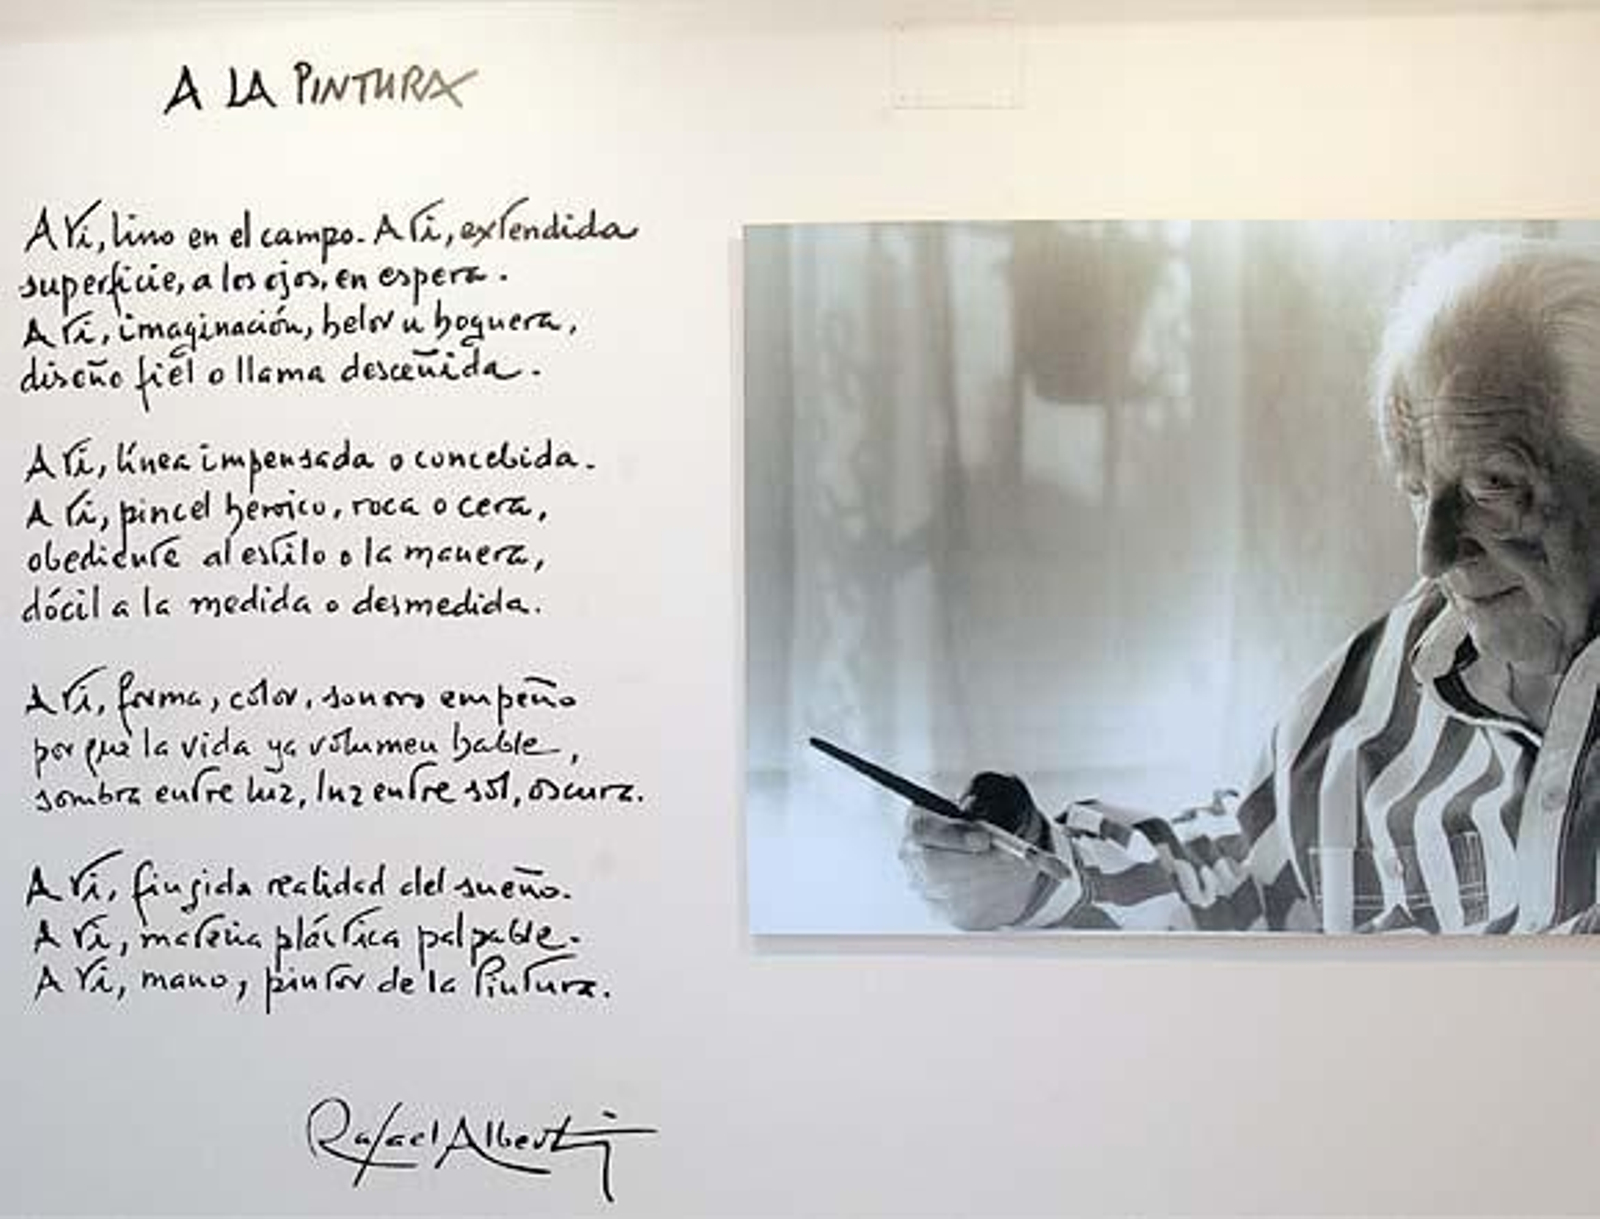 A LA PINTURA
A ti, lino en el campo. A ti, extendida
superficie, a los ojos, en espera.
A ti, imaginación, helor u hoguera,
diseño fiel o llama desceñida.
A ti, línea impensada o concebida.
A ti, pincel heroico, roca o cera,
obediente al estilo o la manera,
dócil a la medida o desmedida.
A ti, forma, color, sonoro empeño
por que la vida ya volumen hable,
sombra entre luz, luz entre sol, oscura.
A ti, fingida realidad del sueño.
A ti, materia plástica palpable.
A ti, mano, pintor de la Pintura.
Rafael Alberti